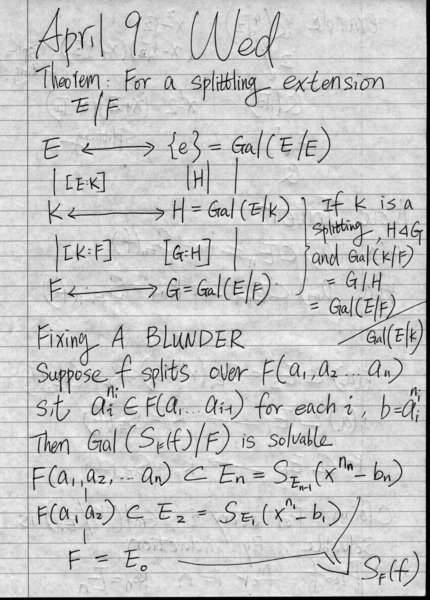 April 9 Wed
Theorem: For a splittling extension
E/F
E ⟷ {e} = Gal(E/E)
| [E:K] [H] |
K ⟷ H = Gal(E/K)
| [K:F] [G:H] |
F ⟷ G = Gal(E/F)
If K is a
splitting, H◁G
and Gal(K/F)
= G/H
= Gal(E/F)
/ Gal(E/K)
Fixing A BLUNDER
Suppose f splits over F(a₁, a₂ ... aₙ)
s.t. aᵢ^nᵢ ∈ F(a₁... aᵢ₋₁) for each i, b = aᵢ^nᵢ
Then Gal(S_F(f)/F) is solvable
F(a₁, a₂, ... aₙ) ⊂ Eₙ = S_Eₙ₋₁(x^nₙ - bₙ)
F(a₁ a₂) ⊂ E₂ = S_E₁(x^n₁ - b₁)
F = E₀
S_F(f)